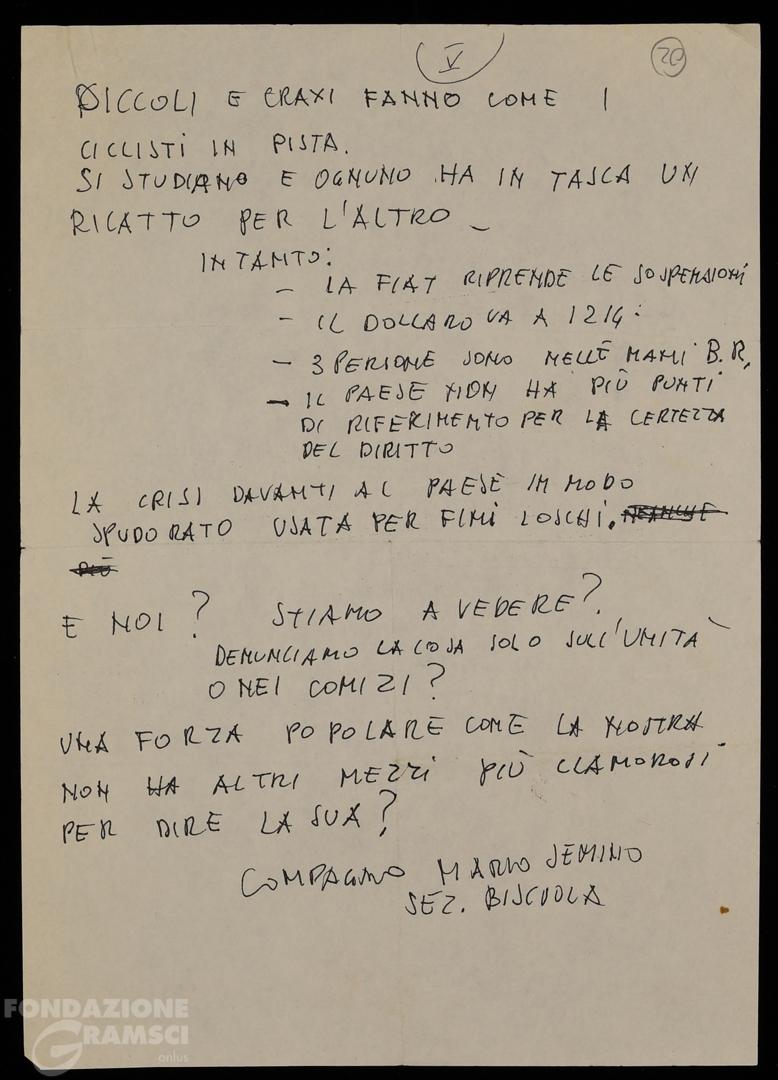 V
20
PICCOLI E CRAXI FANNO COME I
CICLISTI IN PISTA.
SI STUDIANO E OGNUNO HA IN TASCA UN
RICATTO PER L'ALTRO –
INTANTO:
– LA FIAT RIPRENDE LE SOSPENSIONI
– IL DOLLARO VA A 1214:
– 3 PERSONE SONO NELLE MANI B.R,
– IL PAESE NON HA PIÙ PUNTI
DI RIFERIMENTO PER LA CERTEZZA
DEL DIRITTO
LA CRISI DAVANTI AL PAESE IN MODO
SPUDORATO USATA PER FINI LOSCHI. NEANCHE
PIÙ
E NOI? STIAMO A VEDERE?
DENUNCIAMO LA COSA SOLO SULL'UNITÀ
O NEI COMIZI?
UNA FORZA POPOLARE COME LA NOSTRA
NON HA ALTRI MEZZI PIÙ CLAMOROSI
PER DIRE LA SUA?
COMPAGNO MARIO SEMINO
SEZ. BISCUOLA
FONDAZIONE
GRAMSCI
onlus